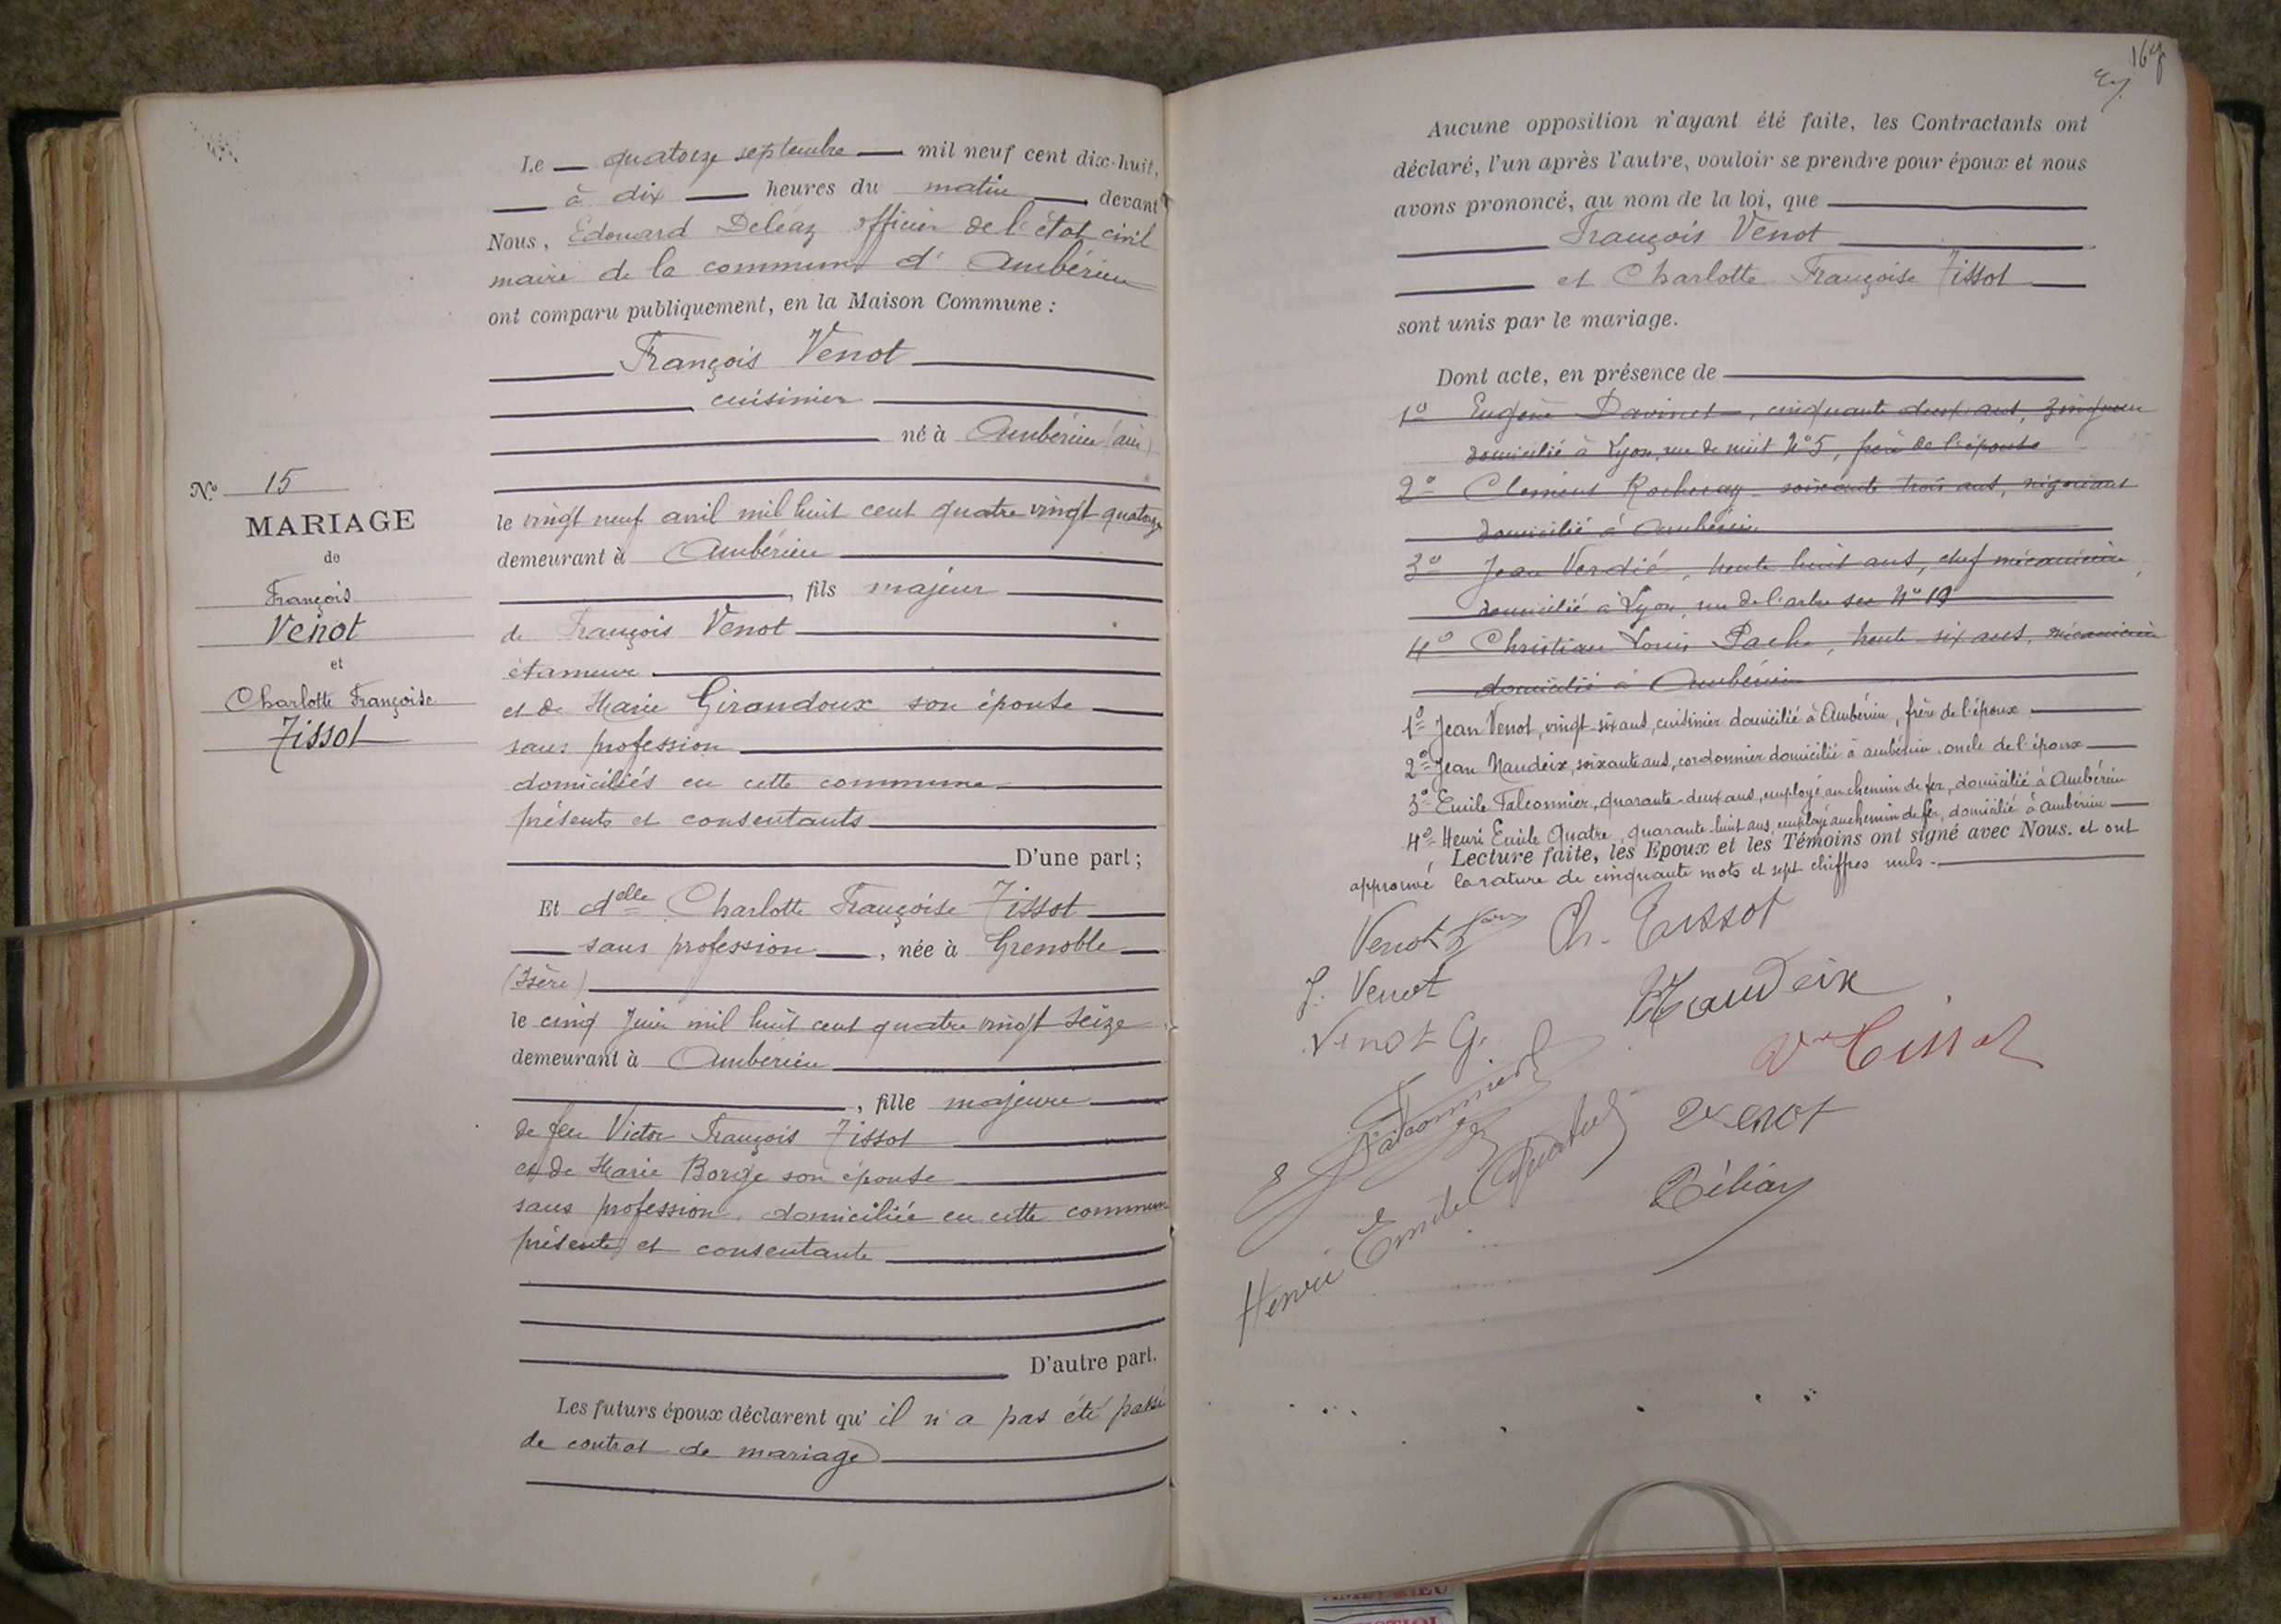 Le — quatorze septembre — mil neuf cent dix-huit,
— à dix — heures du matin —, devant
Nous, Edouard Deléaz officier de l'état civil
maire de la commune d'Ambérieu
ont comparu publiquement, en la Maison Commune :
François Venot
cuisinier
né à Ambérieu (ain)
le vingt neuf avril mil huit cent quatre vingt quatorze
demeurant à Ambérieu
, fils majeur
de François Venot
étameur
et de Marie Giraudoux son épouse
sans profession
domiciliés en cette commune
présents et consentants
D'une part ;
Et delle Charlotte Françoise Tissot
sans profession, née à Grenoble
(Isère)
le cinq Juin mil huit cent quatre vingt seize
demeurant à Ambérieu
, fille majeure
de feu Victor François Tissot
et de Marie Borge son épouse
sans profession, domiciliée en cette commune
présente et consentante
D'autre part.
Les futurs époux déclarent qu'il n'a pas été passé
de contrat de mariage
N.º 15
MARIAGE
de
François
Venot
et
Charlotte Françoise
Tissot
Aucune opposition n'ayant été faite, les Contractants ont
déclaré, l'un après l'autre, vouloir se prendre pour époux et nous
avons prononcé, au nom de la loi, que
François Venot
et Charlotte Françoise Tissot
sont unis par le mariage.
Dont acte, en présence de
1º Eugène, cinquante deux ans, zingueur
domicilié à Lyon, rue de nuit Nº 5, frère de l'épouse
2º Clément, soixante trois ans, négociant
domicilié à Ambérieu
3º Jean Verdié, trente huit ans, chef mécanicien,
domicilié à Lyon, rue de l'arbre sec Nº 19
4º Christian Louis Pache, trente-six ans, mécanicien
domicilié à Ambérieu
1º Jean Venot, vingt-six ans, cuisinier domicilié à Ambérieu, frère de l'époux
2º Jean Naudeix, soixante ans, cordonnier domicilié à ambérieu, oncle de l'époux
3º Emile Falconnier, quarante-deux ans, employé au chemin de fer, domicilié à Ambérieu
4º Henri Emile Quatre, quarante-huit ans, employé au chemin de fer, domicilié à ambérieu
Lecture faite, les Epoux et les Témoins ont signé avec Nous. et ont
approuvé la rature de cinquante mots et sept chiffres nuls.
Venot Ch. Tissot
J. Venot
Naudeix
Venot G.
Vve Tissot
E Falconnier
Venot
Henri Emile Quatre
Deléaz